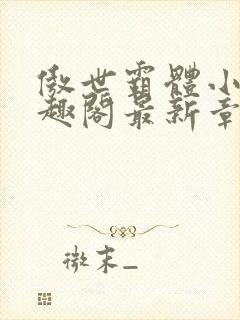 傲世霸體小
趣閣最新章
微末_